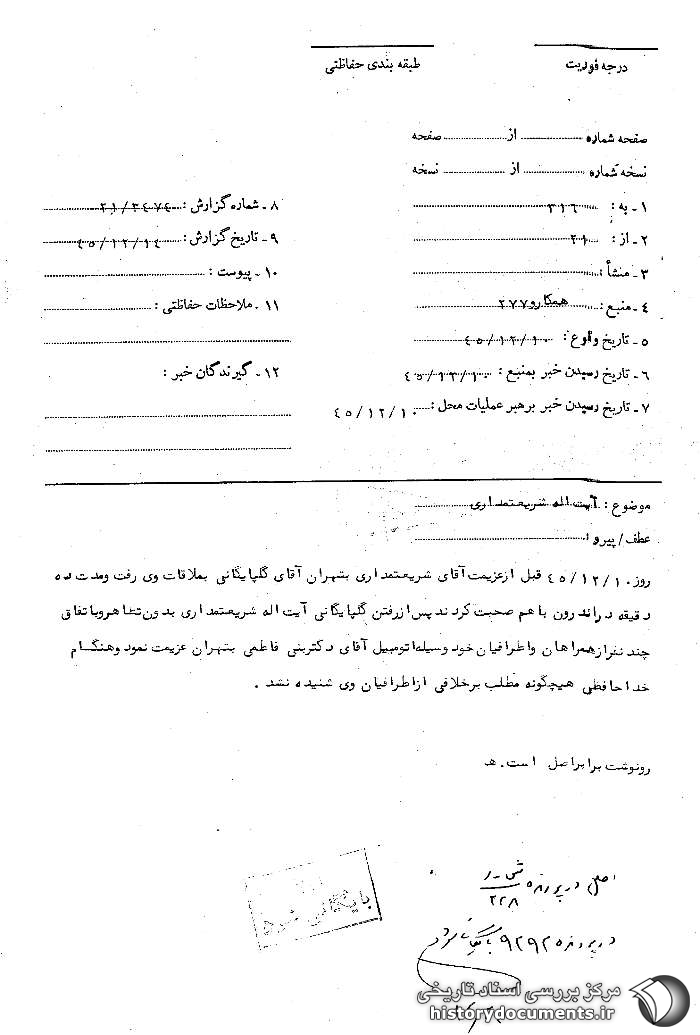 درجه فوریت
طبقه بندی حفاظتی
صفحه شماره از صفحه
نسخه شماره از نسخه
۱ - به : ۳۱۶
۲ - از : ۲۱
۳ - منشأ :
۴ - منبع : همکار و ۲۷۷
۵ - تاریخ وقوع : ۴۵/۱۲/۱۰
۶ - تاریخ رسیدن خبر بمنبع : ۴۵/۱۲/۱۰
۷ - تاریخ رسیدن خبر برهبر عملیات محل : ۴۵/۱۲/۱۰
۸ - شماره گزارش : ۲۱/۲۴۷۴
۹ - تاریخ گزارش : ۴۵/۱۲/۱۴
۱۰ - پیوست :
۱۱ - ملاحظات حفاظتی :
۱۲ - گیرندگان خبر :
موضوع : آیت اله شریعتمداری
عطف / پیرو :
روز ۴۵/۱۲/۱۰ قبل ازعزیمت آقای شریعتمداری بتهران آقای گلپایگانی بملاقات وی رفت ومدت ده
دقیقه در اندرون با هم صحبت کردند پس ازرفتن گلپایگانی آیت اله شریعتمداری بدون تظاهر وباتفاق
چند نفرازهمراهان واطرافیان خود وسیله اتومبیل آقای دکتربنی فاطمی بتهران عزیمت نمود وهنگام
خداحافظی هیچگونه مطلب برخلافی ازاطرافیان وی شنیده نشد .
رونوشت برابر اصل است . هـ
اصل در پرونده
۲۲۸
در پرونده ۹۲۹۲ بایگانی شود
بایگانی شده
مرکز بررسی اسناد تاریخی
historydocuments.ir